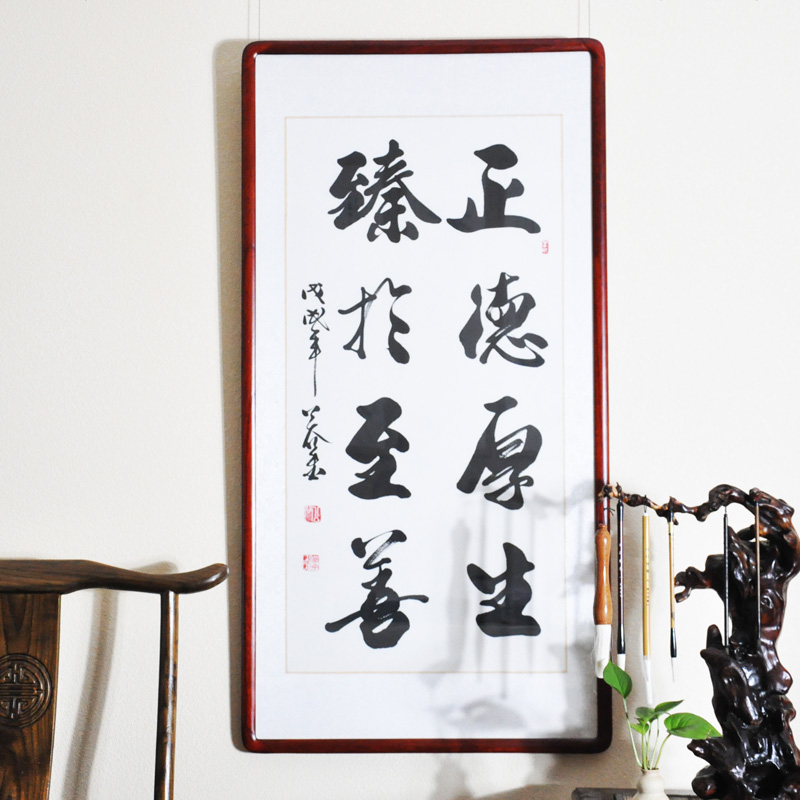 正德厚生
臻于至善
戊戌年